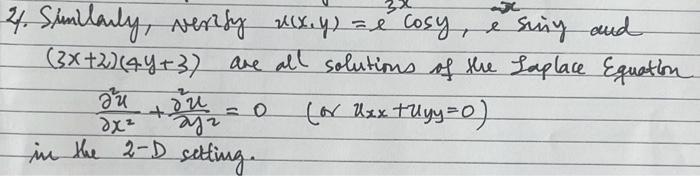 4. Similarly, verify u(x,y) = e^{3x} cosy, e^{-x} siny and
(3x+2)(4y+3) are all solutions of the Laplace Equation
∂²u/∂x² + ∂²u/∂y² = 0 (or Uxx + Uyy = 0)
in the 2-D setting.